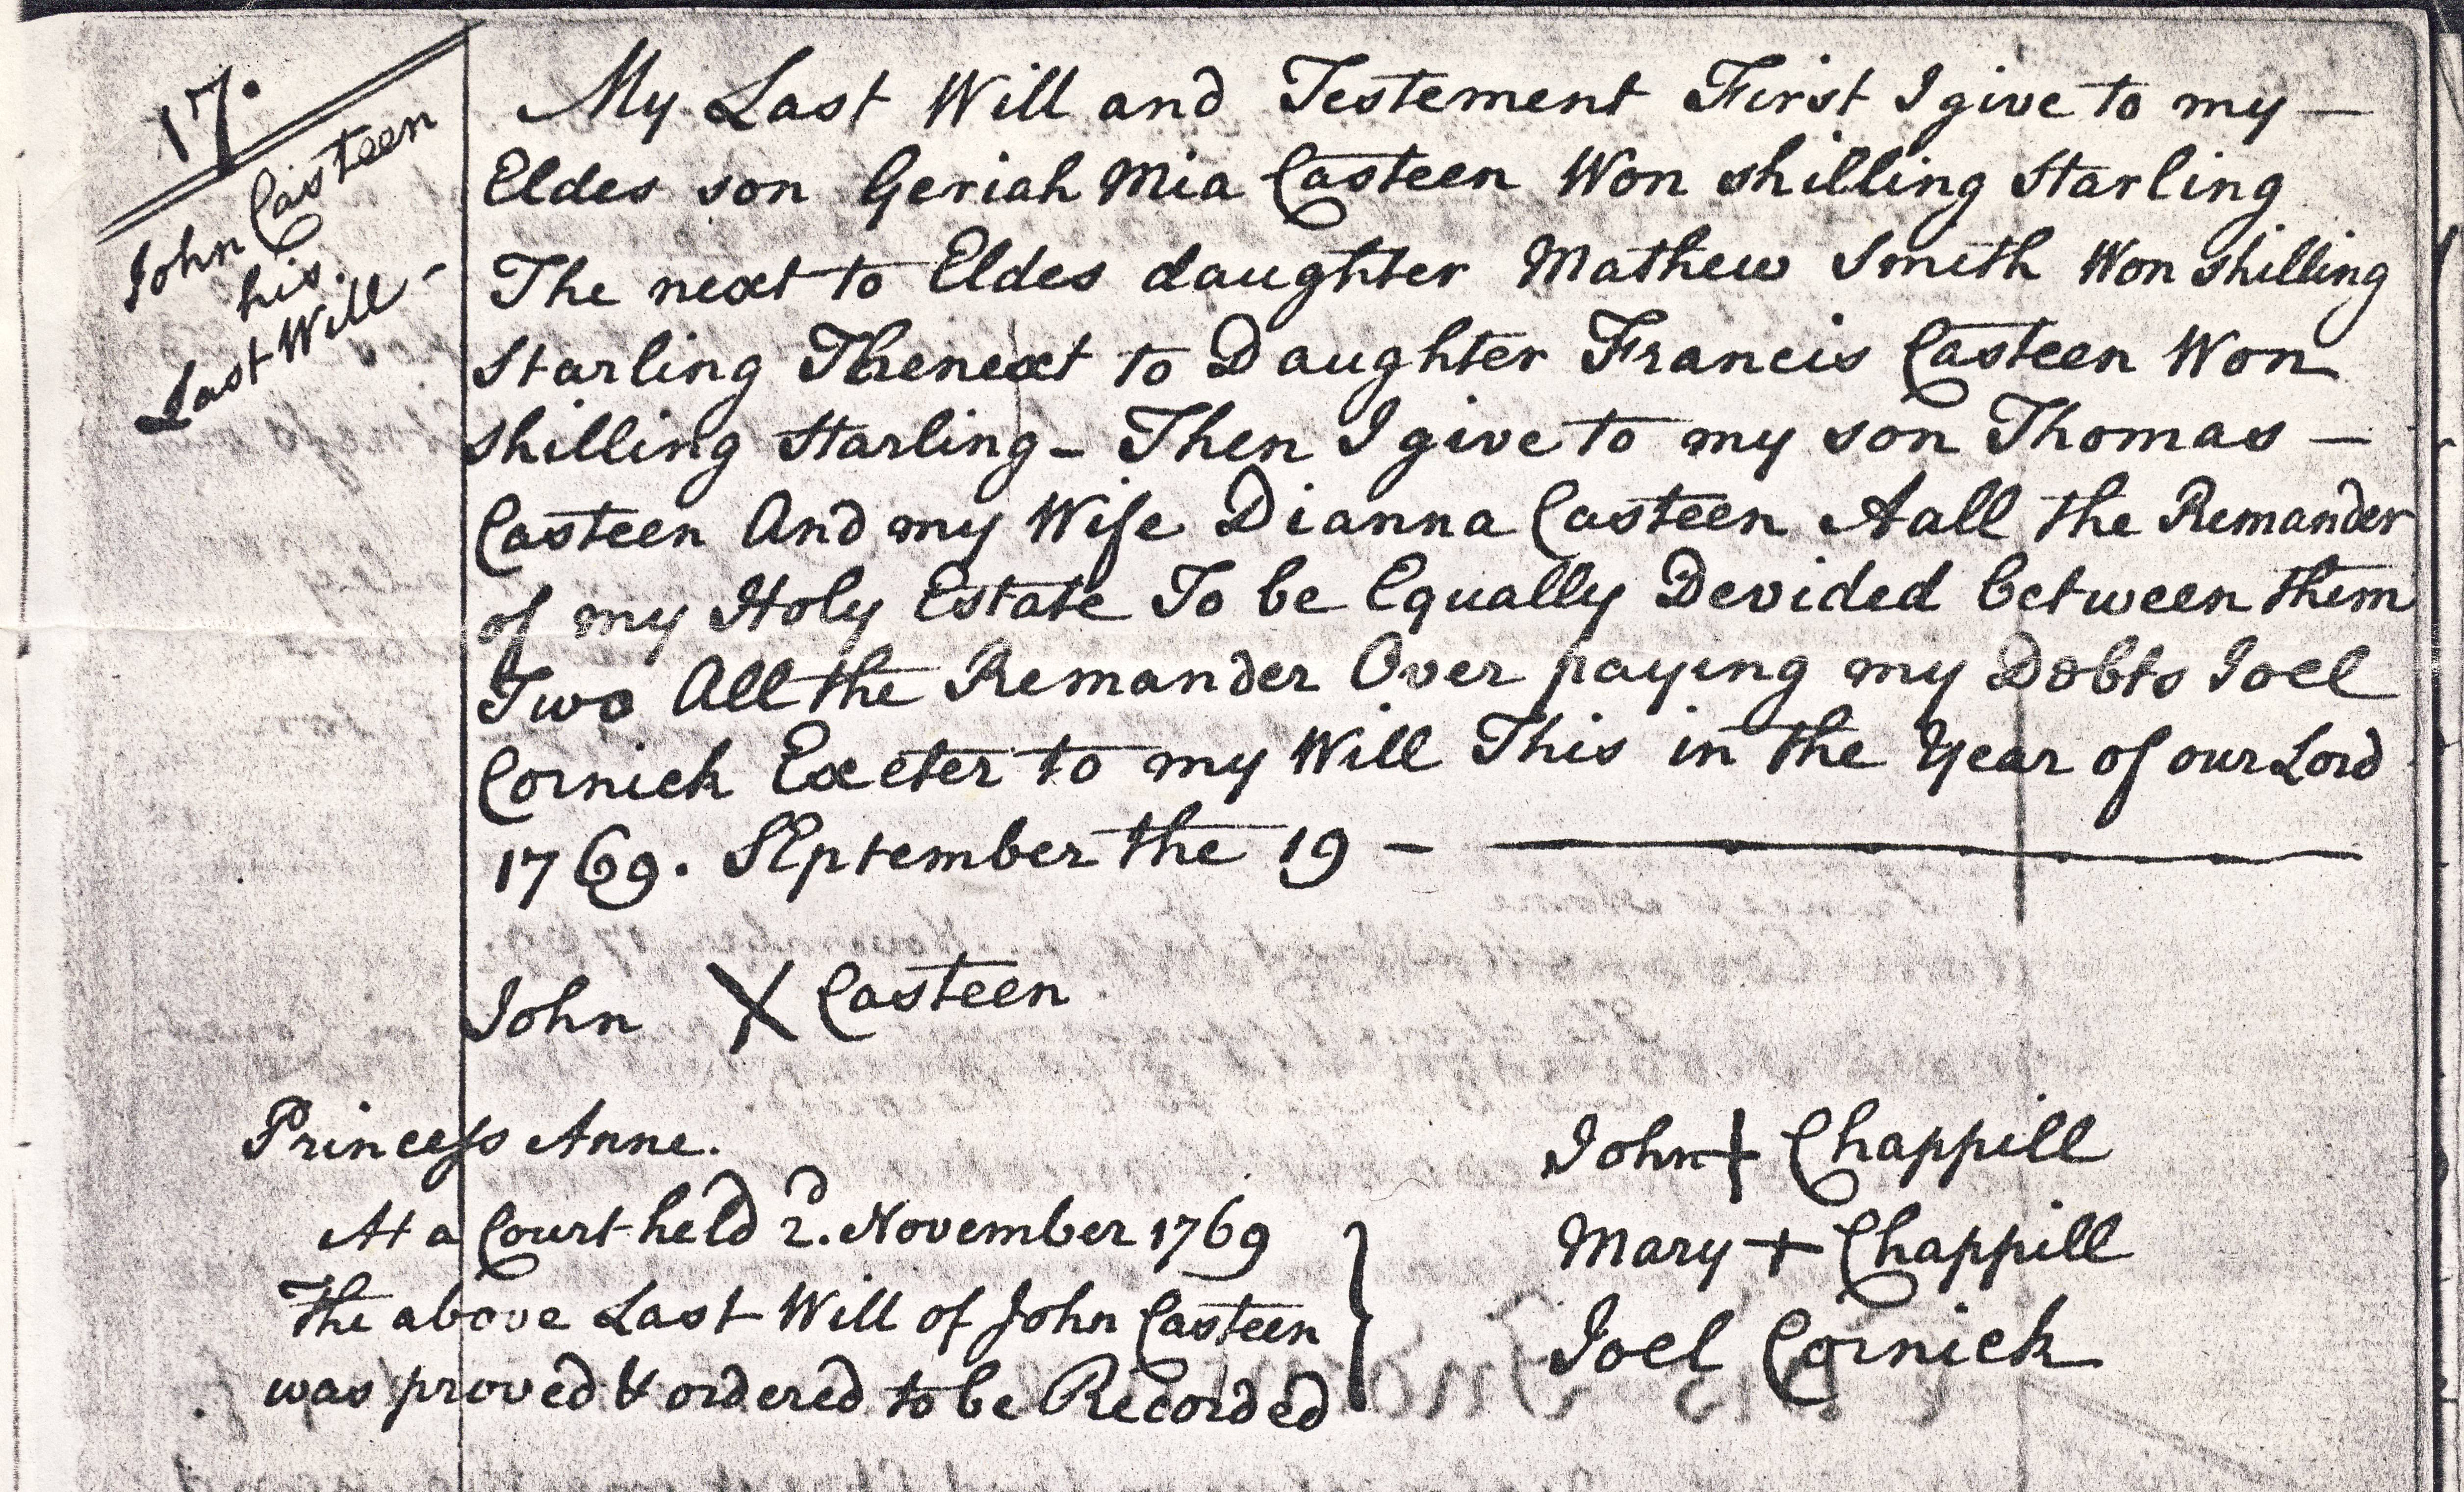 17.
John Casteen
his.
Last Will -
My Last Will and Testement First I give to my —
Eldes son Geriah Mia Casteen Won shilling Starling
The next to Eldes daughter Mathew Smith Won shilling
Starling Thenext to Daughter Francis Casteen Won
shilling Starling - Then I give to my son Thomas —
Casteen And my Wife Dianna Casteen Aall the Remander
of my Holy Estate To be Equally Devided between them
Two All the Remander Over paying my Dobts Joel
Cornick Exeter to my Will This in the Year of our Lord
1769. SEptember the 19 —
John X Casteen
Princess Anne.
At a Court held 2d. November 1769
The above Last Will of John Casteen
was proved & ordered to be Recorded
John + Chappill
Mary + Chappill
Joel Cornick